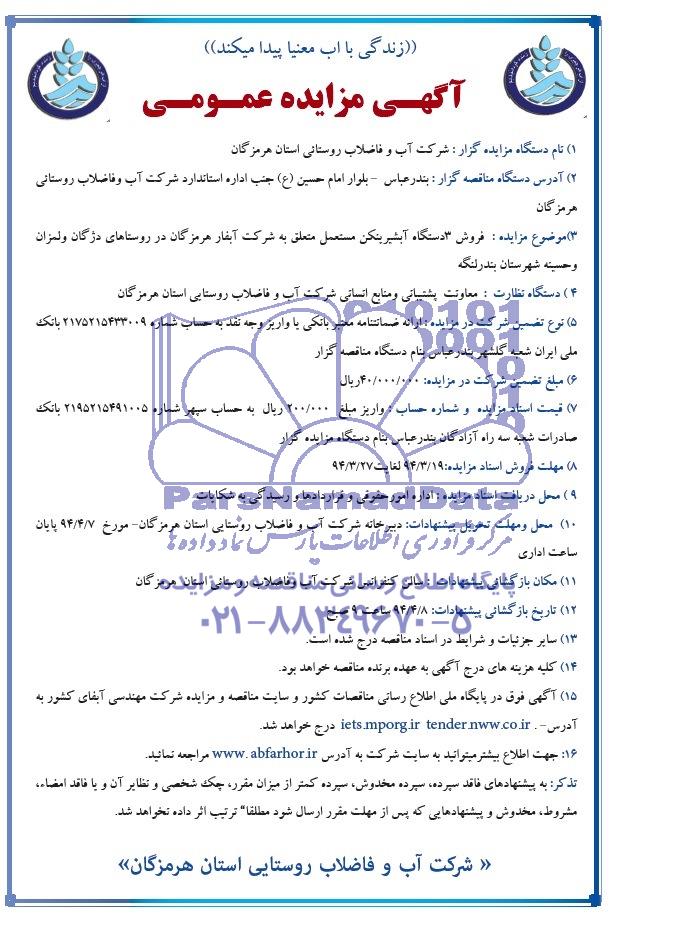 ((زندگی با اب معنیا پیدا میکند))
آگهی مزایده عمومی
۱) نام دستگاه مزایده گزار : شرکت آب و فاضلاب روستائی استان هرمزگان
۲) آدرس دستگاه مناقصه گزار : بندرعباس - بلوار امام حسین (ع) جنب اداره استاندارد شرکت آب وفاضلاب روستائی
هرمزگان
۳)موضوع مزایده : فروش ۳دستگاه آبشیرینکن مستعمل متعلق به شرکت آبفار هرمزگان در روستاهای دژگان ولمزان
وحسینه شهرستان بندرلنگه
۴ ) دستگاه نظارت : معاونت پشتیبانی ومنابع انسانی شرکت آب و فاضلاب روستایی استان هرمزگان
۵) نوع تضمین شرکت در مزایده : ارائه ضمانتنامه معتبر بانکی یا واریز وجه نقد به حساب شماره ۲۱۷۵۲۱۵۴۳۳۰۰۹ بانک
ملی ایران شعبه گلشهر بندرعباس بنام دستگاه مناقصه گزار
۶) مبلغ تضمین شرکت در مزایده: ۴۰/۰۰۰/۰۰۰ریال
۷) قیمت اسناد مزایده و شماره حساب : واریز مبلغ ۲۰۰/۰۰۰ ریال به حساب سپهر شماره ۲۱۹۵۲۱۵۴۹۱۰۰۵ بانک
صادرات شعبه سه راه آزادگان بندرعباس بنام دستگاه مزایده گزار
۸) مهلت فروش اسناد مزایده:۹۴/۳/۱۹ لغایت۹۴/۳/۲۷
۹ ) محل دریافت اسناد مزایده : اداره امورحقوقی و قراردادها و رسیدگی به شکایات
ParsNamadData
۱۰) محل ومهلت تحویل پیشنهادات: دبیرخانه شرکت آب و فاضلاب روستایی استان هرمزگان- مورخ ۹۴/۴/۷ پایان
ساعت اداری
مرکز فرآوری اطلاعات پارس نماد داده ها
۱۱) مکان بازگشائی پیشنهادات : سالن کنفرانس شرکت آب وفاضلاب روستائی استان هرمزگان
پایگاه اطلاع رسانی مناقصه و مزایده
۱۲) تاریخ بازگشائی پیشنهادات: ۹۴/۴/۸ ساعت ۹ صبح
۰۲۱-۸۸۳۴۹۶۷۰-۵
۱۳) سایر جزئیات و شرایط در اسناد مناقصه درج شده است.
۱۴) کلیه هزینه های درج آگهی به عهده برنده مناقصه خواهد بود.
۱۵) آگهی فوق در پایگاه ملی اطلاع رسانی مناقصات کشور و سایت مناقصه و مزایده شرکت مهندسی آبفای کشور به
آدرس- . iets.mporg.ir tender.nww.co.ir درج خواهد شد.
۱۶: جهت اطلاع بیشترمیتوانید به سایت شرکت به آدرس www. abfarhor.ir مراجعه نمائید.
تذکر: به پیشنهادهای فاقد سپرده، سپرده مخدوش، سپرده کمتر از میزان مقرر، چک شخصی و نظایر آن و یا فاقد امضاء،
مشروط، مخدوش و پیشنهادهایی که پس از مهلت مقرر ارسال شود مطلقا“ ترتیب اثر داده نخواهد شد.
« شرکت آب و فاضلاب روستایی استان هرمزگان»